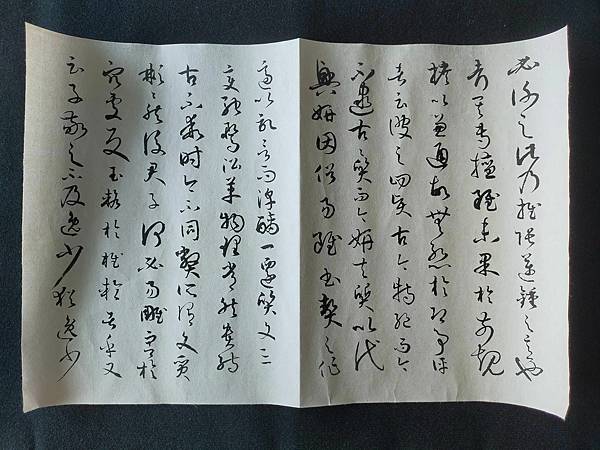 必謝之此乃推張邁鍾之意也
考其專擅雖未果於前規
摭以兼通故無慚於即事評
者云彼之四賢古今特絕而今
不逮古〻質而今妍夫質以代
興妍因俗易雖書契之作
適以記言而淳醨一遷質文三
變馳騖沿革物理常然貴能
古不乖時今不同弊所謂文質
彬〻然後君子何必易雕宮於
穴處反玉輅於椎輪者乎又
云子敬之不及逸少猶逸少